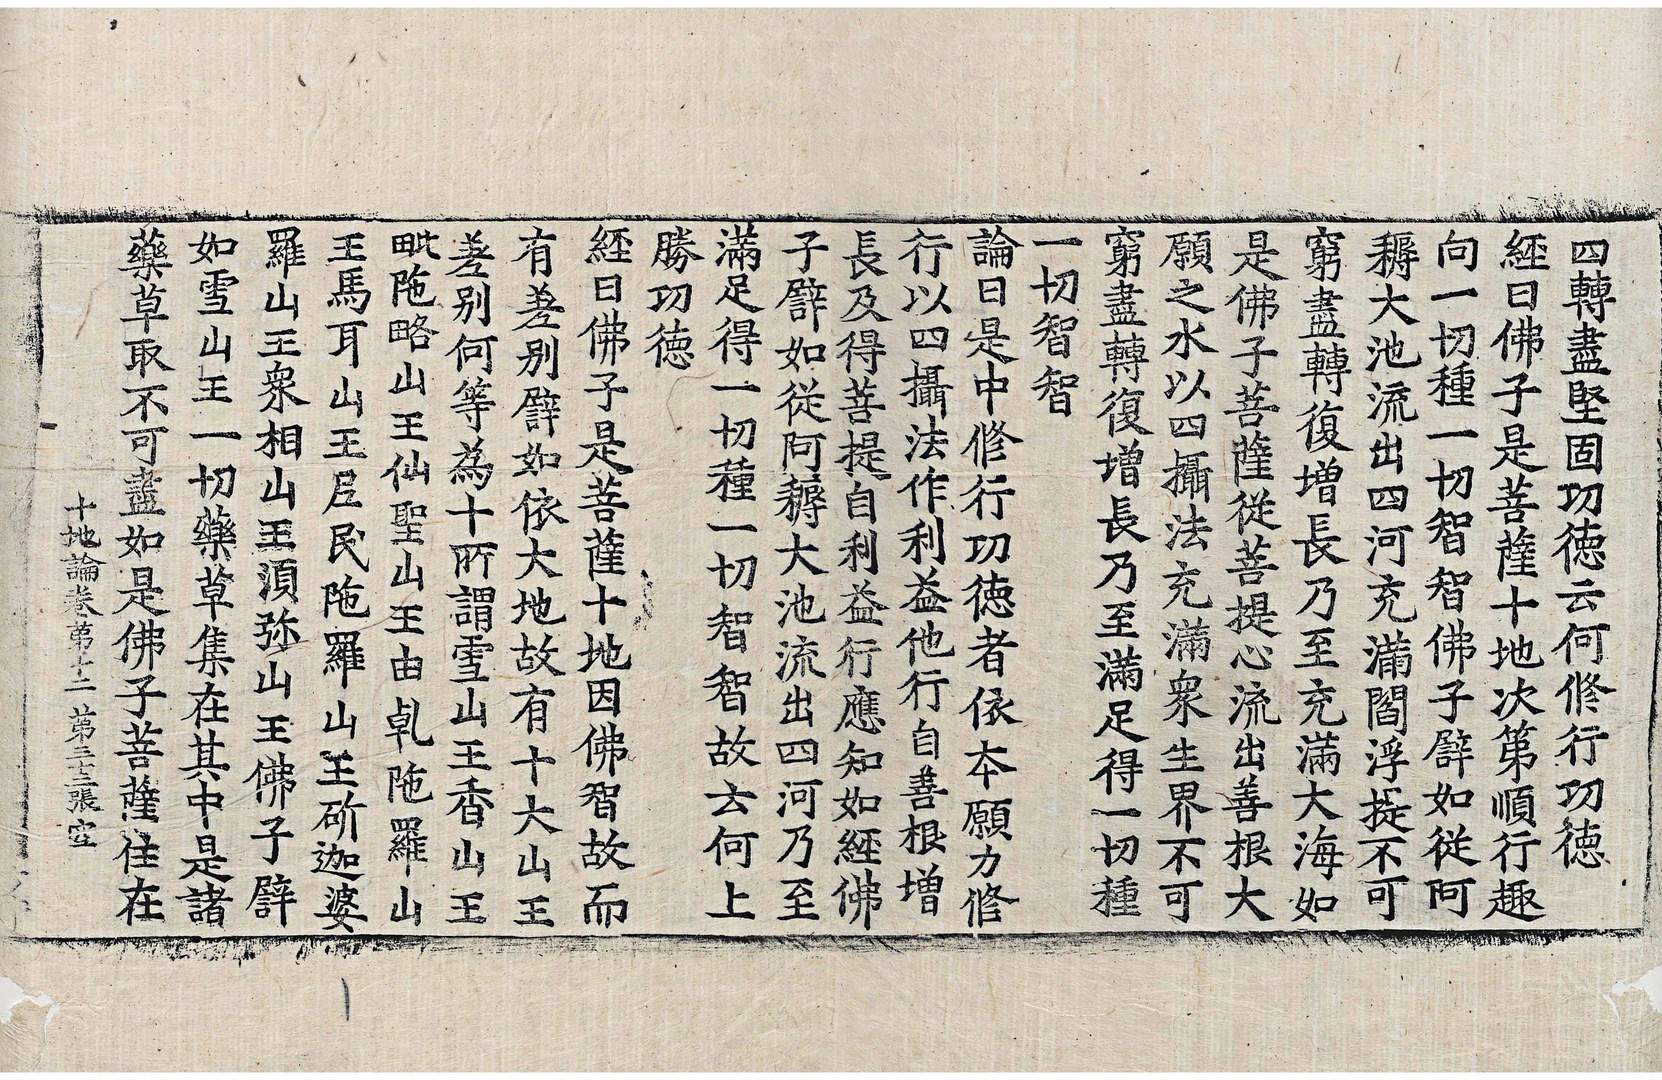 四轉盡堅固功德云何修行功德
經曰佛子是菩薩十地次第順行趣
向一切種一切智智佛子譬如從阿
耨大池流出四河充滿閻浮提不可
窮盡轉復增長乃至充滿大海如
是佛子菩薩從菩提心流出善根大
願之水以四攝法充滿衆生界不可
窮盡轉復增長乃至滿足得一切種
一切智智
論曰是中修行功德者依本願力修
行以四攝法作利益他行自善根增
長及得菩提自利益行應知如經佛
子譬如從阿耨大池流出四河乃至
滿足得一切種一切智智故云何上
勝功德
經曰佛子是菩薩十地因佛智故而
有差别譬如依大地故有十大山王
差别何等為十所謂雪山王香山王
毗陁略山王仙聖山王由乹陁羅山
王馬耳山王𡰱民陁羅山王斫迦婆
羅山王衆相山王湏弥山王佛子譬
如雪山王一切藥草集在其中是諸
藥草取不可盡如是佛子菩薩住在
十地論卷第十二 第三十二張 空